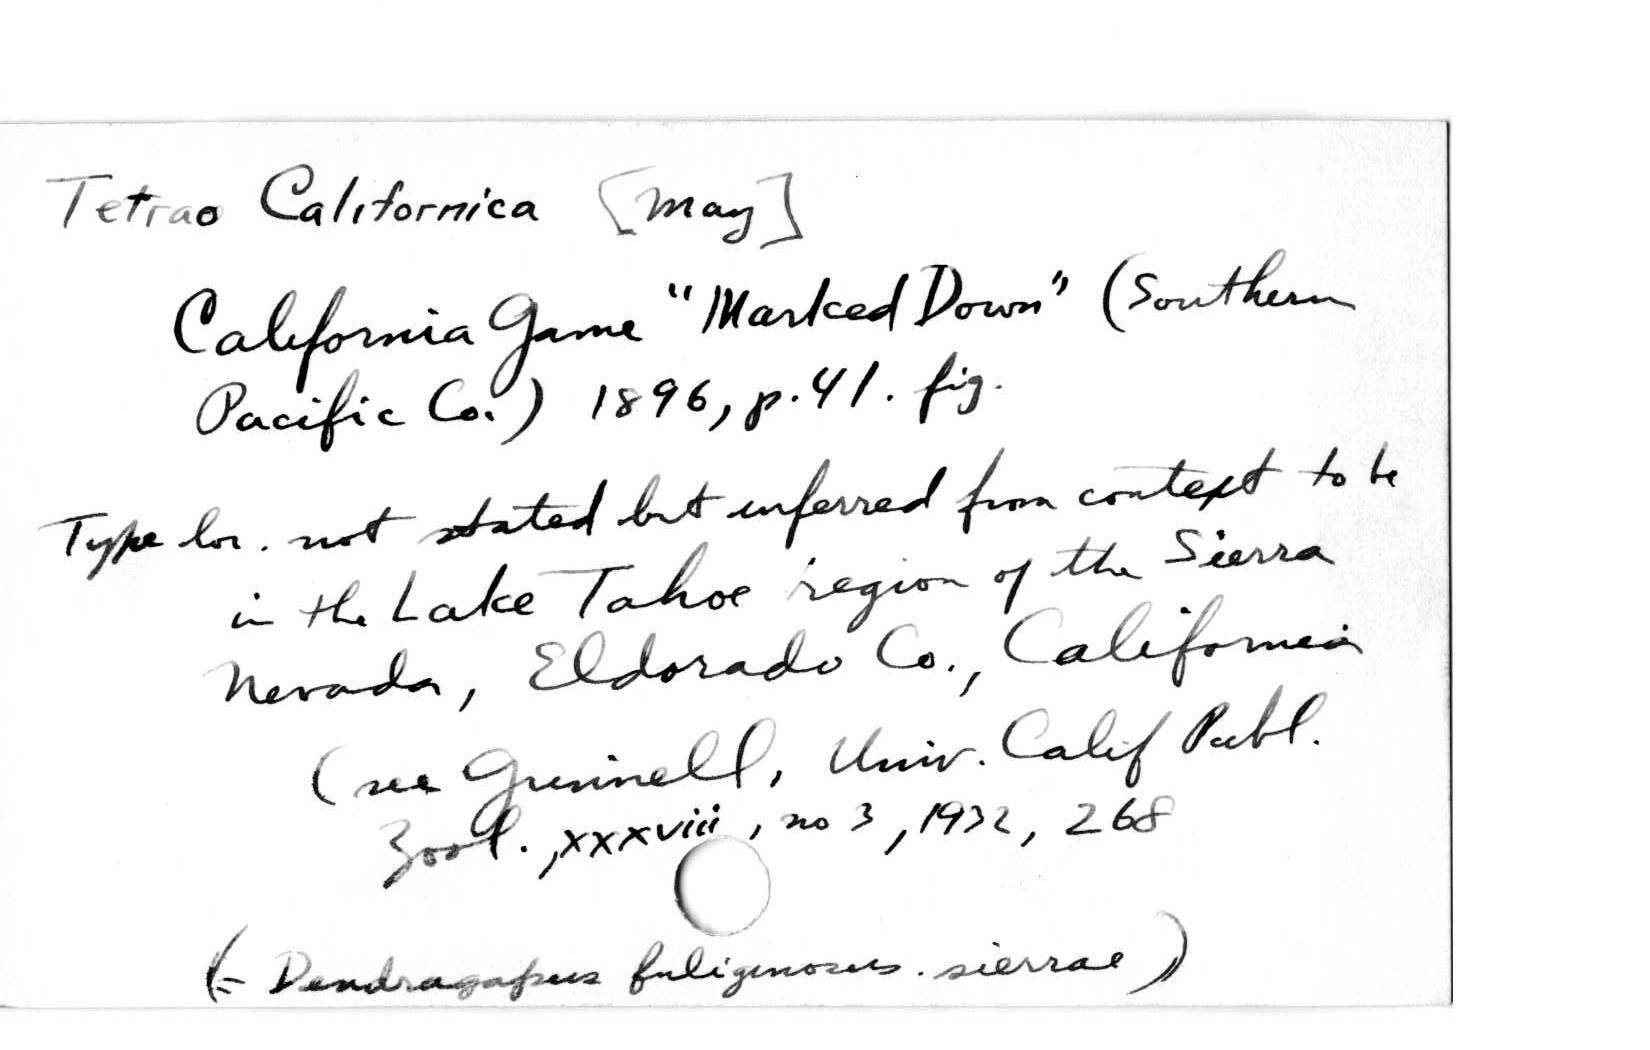 Tetrao Californica [May]
California Game "Marked Down" (Southern
Pacific Co.) 1896, p.41. fig.
Type loc. not stated but inferred from context to be
in the Lake Tahoe region of the Sierra
Nevada, Eldorado Co., California
(see Grinnell, Univ. Calif Publ.
Zool., xxxviii, no 3, 1932, 268
(= Dendragapus fuliginosus sierrae)